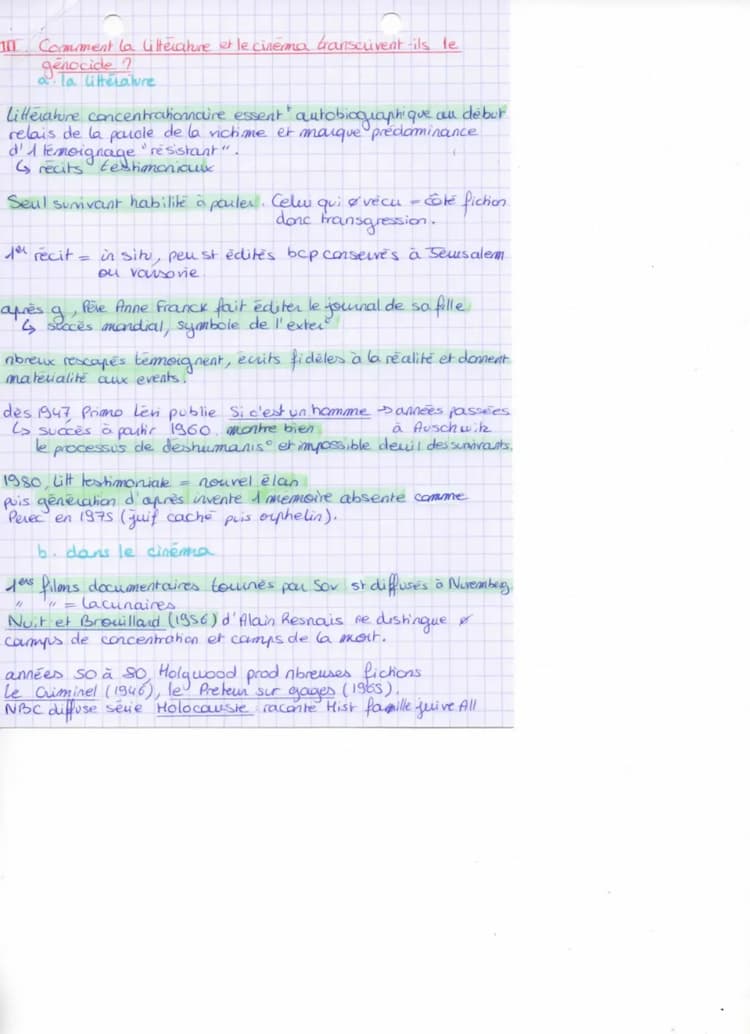 III Comment la littérature et le cinéma transcrivent-ils le
génocide ?
a. la littérature
Littérature concentrationnaire essent^t autobiographique au début
relais de la parole de la victime et marque prédominance
d'1 témoignage "résistant".
↳ récits testimoniaux
Seul survivant habilité à parler. Celui qui ø vécu = côté fiction
donc transgression.
1er récit = in situ, peu st édités bcp conservés à Jérusalem
ou varsovie
après g, Père Anne Franck fait éditer le journal de sa fille
↳ succès mondial, symbole de l'exter°
nbreux rescapés témoignent, écrits fidèles à la réalité et donnent
matérialité aux events.
dès 1947 Primo Lévi publie Si c'est un homme → années passées
↳ succès à partir 1960. montre bien à Auschwitz
le processus de déshumanis° et impossible deuil des survivants.
1980, Litt testimoniale = nouvel élan
puis génération d'après invente 1 mémoire absente comme
Perec en 1975 (juif caché puis orphelin).
b. dans le cinéma
1ers films documentaires tournés par Sov st diffusés à Nuremberg
" " = lacunaires
Nuit et Brouillard (1956) d'Alain Resnais ne distingue ø
camps de concentration et camps de la mort.
années 50 à 80, Holywood prod nbreuses fictions
Le Criminel (1946), le Preteur sur gages (1965).
NBC diffuse série Holocauste raconte Hist famille juive All